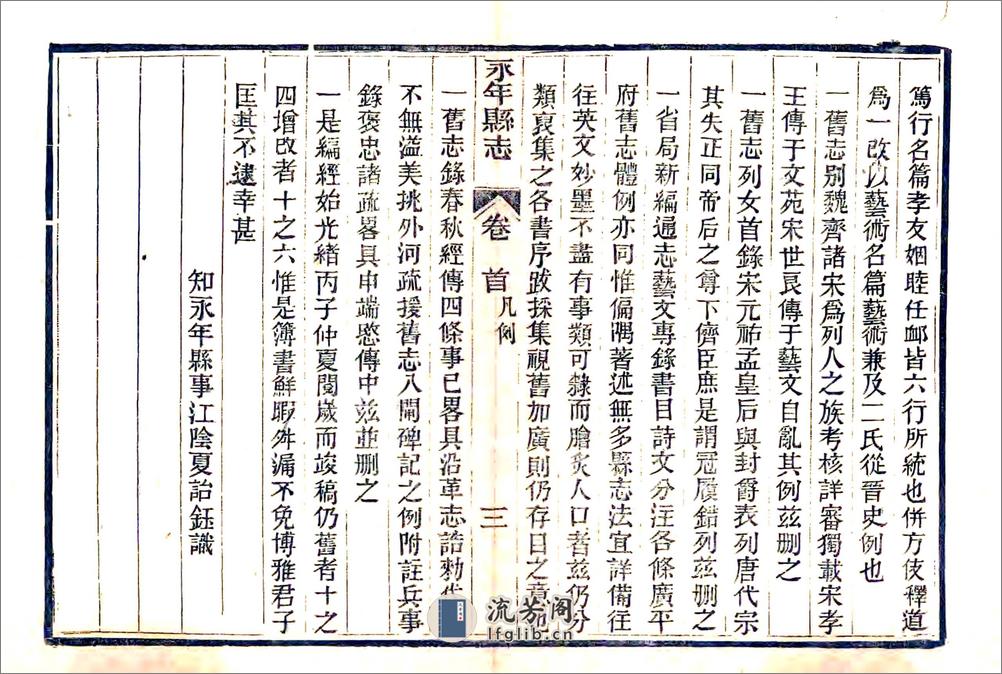 篤行名篇孝友姻睦任䘏皆六行所統也併方伎釋道
爲一改以藝術名篇藝術兼及二氏從晉史例也
一舊志别魏齊諸宋爲列人之族考核詳審獨載宋孝
王傳于文苑宋世良傳于藝文自亂其例茲删之
一舊志列女首錄宋元祐孟皇后與封爵表列唐代宗
其失正同帝后之尊下儕臣庶是謂冠履錯列茲删之
一省局新編通志藝文專錄書目詩文分注各條廣平
府舊志體例亦同惟偏隅著述無多縣志法宜詳備往
往英文妙墨不盡有事類可隸而膾炙人口者茲仍分
類裒集之各書序跋採集視舊加廣則仍存目之意
永年縣志
卷首
凡例
三
一舊志錄春秋經傳四條事已畧具沿革志誥勅
不無溢美挑外河疏援舊志八閘碑記之例附註兵事
錄褒忠諸疏畧具申端愍傳中茲並删之
一是編經始光緒丙子仲夏閱歲而竣稿仍舊者十之
四增改者十之六惟是簿書鮮暇舛漏不免博雅君子
匡其不逮幸甚
知永年縣事江陰夏詒鈺識
流芳阁
lfglib.cn